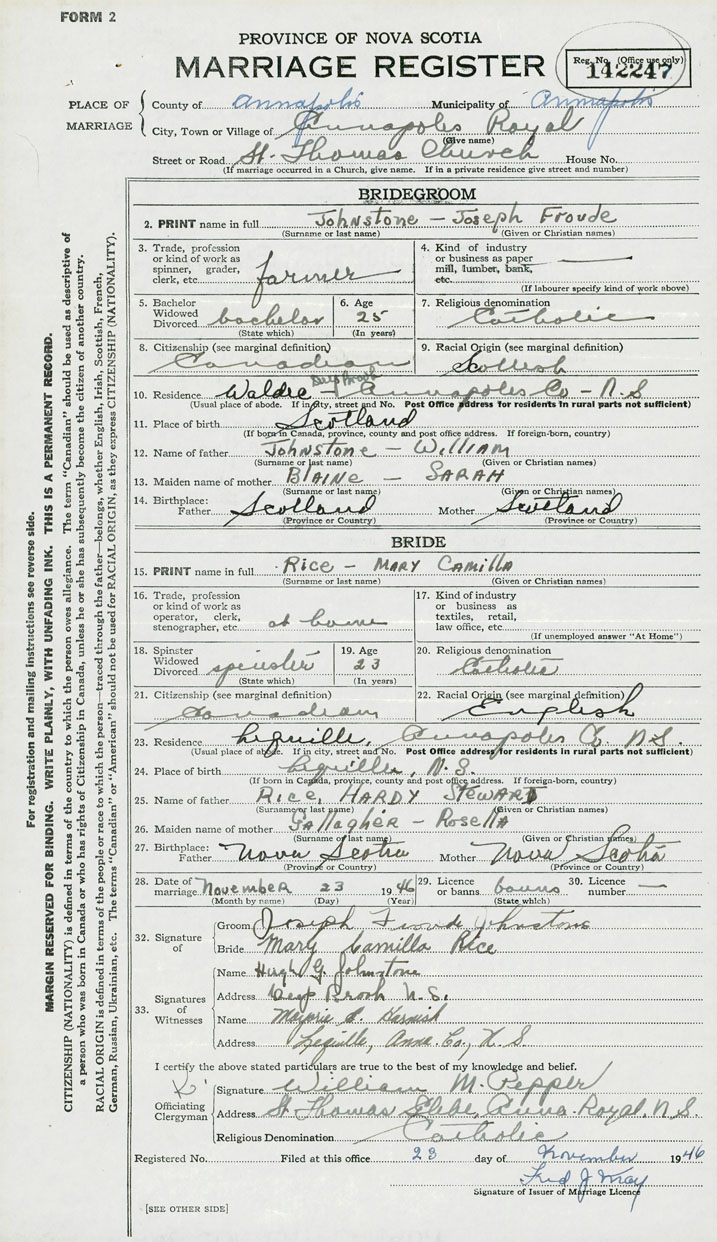 FORM 2
PROVINCE OF NOVA SCOTIA
MARRIAGE REGISTER
Reg. No. (Office use only)
142247
PLACE OF MARRIAGE
County of Annapolis Municipality of Annapolis
City, Town or Village of Annapolis Royal
(Give name)
Street or Road St. Thomas Church House No.
(If marriage occurred in a Church, give name. If in a private residence give street and number)
BRIDEGROOM
2. PRINT name in full Johnstone - Joseph Froude
(Surname or last name) (Given or Christian names)
3. Trade, profession or kind of work as spinner, grader, clerk, etc. farmer
4. Kind of industry or business as paper mill, lumber, bank, etc. —
(If labourer specify kind of work above)
5. Bachelor Widowed Divorced bachelor
(State which)
6. Age 25
(In years)
7. Religious denomination Catholic
8. Citizenship (see marginal definition) Canadian
9. Racial Origin (see marginal definition) Scottish
10. Residence Waldec - Deep Brook Annapolis Co - N.S
(Usual place of abode. If in city, street and No. Post Office address for residents in rural parts not sufficient)
11. Place of birth Scotland
(If born in Canada, province, county and post office address. If foreign-born, country)
12. Name of father Johnstone - William
(Surname or last name) (Given or Christian names)
13. Maiden name of mother Blaine - SARAH
(Surname or last name) (Given or Christian names)
14. Birthplace: Father Scotland Mother Scotland
(Province or Country) (Province or Country)
BRIDE
15. PRINT name in full Rice - MARY CAMILLA
(Surname or last name) (Given or Christian names)
16. Trade, profession or kind of work as operator, clerk, stenographer, etc. at home
17. Kind of industry or business as textiles, retail, law office, etc.
(If unemployed answer "At Home")
18. Spinster Widowed Divorced spinster
(State which)
19. Age 23
(In years)
20. Religious denomination Catholic
21. Citizenship (see marginal definition) Canadian
22. Racial Origin (see marginal definition) English
23. Residence Lequille, Annapolis Co. N.S.
(Usual place of abode. If in city, street and No. Post Office address for residents in rural parts not sufficient)
24. Place of birth Lequille, N.S.
(If born in Canada, province, county and post office address. If foreign-born, country)
25. Name of father Rice, HARDY STEWARD
(Surname or last name) (Given or Christian names)
26. Maiden name of mother Gallagher - Rosella
(Surname or last name) (Given or Christian names)
27. Birthplace: Father Nova Scotia Mother Nova Scotia
(Province or Country) (Province or Country)
28. Date of marriage November 23 1946
(Month by name) (Day) (Year)
29. Licence or banns banns
(State which)
30. Licence number —
32. Signature of
Groom Joseph Froude Johnstone
Bride Mary Camilla Rice
33. Signatures of Witnesses
Name Hugh G. Johnstone
Address Deep Brook N.S.
Name Marjorie Harnish
Address Lequille, Anna. Co., N.S.
I certify the above stated particulars are true to the best of my knowledge and belief.
Officiating Clergyman
Signature William M. Pepper
Address St. Thomas Glebe, Anna. Royal, N.S.
Religious Denomination Catholic
Registered No. Filed at this office 23 day of November 1946
Fred J May
Signature of Issuer of Marriage Licence
[SEE OTHER SIDE]
For registration and mailing instructions see reverse side.
MARGIN RESERVED FOR BINDING. WRITE PLAINLY, WITH UNFADING INK. THIS IS A PERMANENT RECORD.
CITIZENSHIP (NATIONALITY) is defined in terms of the country to which the person owes allegiance. The term "Canadian" should be used as descriptive of
a person who was born in Canada or who has rights of Citizenship in Canada, unless he or she has subsequently become the citizen of another country.
RACIAL ORIGIN is defined in terms of the people or race to which the person—traced through the father—belongs, whether English, Irish, Scottish, French,
German, Russian, Ukrainian, etc. The terms "Canadian" or "American" should not be used for RACIAL ORIGIN, as they express CITIZENSHIP (NATIONALITY).